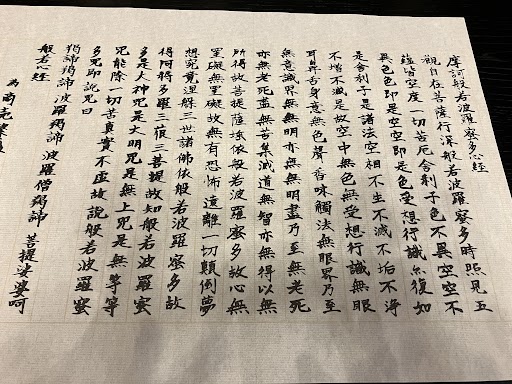 摩訶般若波羅蜜多心経
觀自在菩薩行深般若波羅蜜多時照見五
蘊皆空度一切苦厄舎利子色不異空空不
異色色即是空空即是色受想行識亦復如
是舎利子是諸法空相不生不滅不垢不浄
不増不減是故空中無色無受想行識無眼
耳鼻舌身意無色聲香味觸法無眼界乃至
無意識界無無明亦無無明盡乃至無老死
亦無老死盡無苦集滅道無智亦無得以無
所得故菩提薩埵依般若波羅蜜多故心無
罣礙無罣礙故無有恐怖遠離一切顛倒夢
想究竟涅槃三世諸佛依般若波羅蜜多故
得阿耨多羅三藐三菩提故知般若波羅蜜
多是大神咒是大明咒是無上咒是無等等
咒能除一切苦真實不虚故説般若波羅蜜
多咒即説咒曰
羯諦羯諦 波羅羯諦 波羅僧羯諦 菩提娑婆訶
般若心経
為